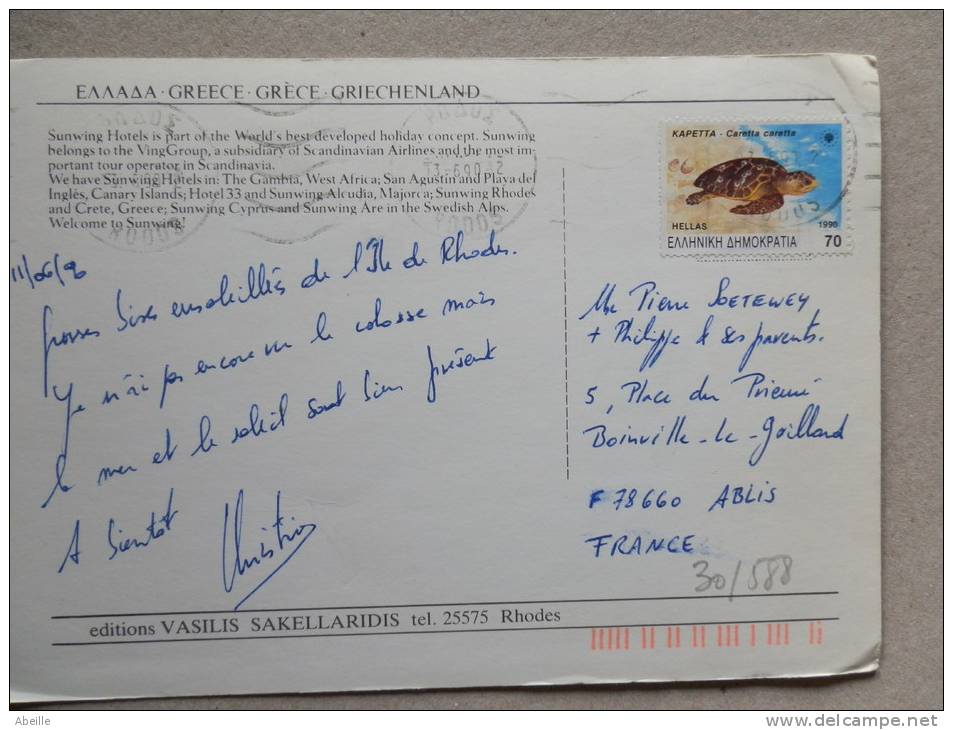 ΕΛΛΑΔΑ · GREECE · GRÈCE · GRIECHENLAND
Sunwing Hotels is part of the World's best developed holiday concept. Sunwing
belongs to the VingGroup, a subsidiary of Scandinavian Airlines and the most im-
portant tour operator in Scandinavia.
We have Sunwing Hotels in: The Gambia, West Africa; San Agustin and Playa del
Inglés, Canary Islands; Hotel 33 and Sunwing Alcudia, Majorca; Sunwing Rhodes
and Crete, Greece; Sunwing Cyprus and Sunwing Åre in the Swedish Alps.
Welcome to Sunwing!
11/06/90
Grosses Bises ensoleillées de l'Île de Rhodes.
Je n'ai pas encore vu le colosse mais
la mer et le soleil sont bien présent
A bientôt
Christine
ΚΑΡΕΤΤΑ - Caretta caretta
HELLAS 1990
ΕΛΛΗΝΙΚΗ ΔΗΜΟΚΡΑΤΙΑ 70
Pierre SOETEWEY
+ Philippe & ses parents.
5, Place du Prieuré
Boinville-le-Gaillard
F 78660 ABLIS
FRANCE
30/588
editions VASILIS SAKELLARIDIS tel. 25575 Rhodes
Abeille
www.delcampe.net